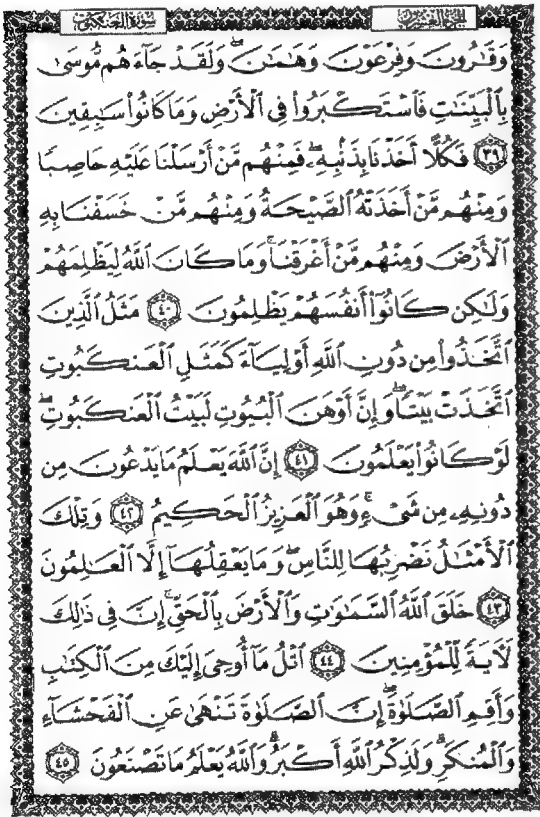 سُورَةُ العَنكبُوت الجزء العشرون
وَقَٰرُونَ وَفِرْعَوْنَ وَهَٰمَٰنَ ۖ وَلَقَدْ جَآءَهُم مُّوسَىٰ
بِالْبَيِّنَٰتِ فَاسْتَكْبَرُوا۟ فِى الْأَرْضِ وَمَا كَانُوا۟ سَٰبِقِينَ
٣٩ فَكُلًّا أَخَذْنَا بِذَنۢبِهِۦ ۖ فَمِنْهُم مَّنْ أَرْسَلْنَا عَلَيْهِ حَاصِبًا
وَمِنْهُم مَّنْ أَخَذَتْهُ الصَّيْحَةُ وَمِنْهُم مَّنْ خَسَفْنَا بِهِ
الْأَرْضَ وَمِنْهُم مَّنْ أَغْرَقْنَا ۚ وَمَا كَانَ اللَّهُ لِيَظْلِمَهُمْ
وَلَٰكِن كَانُوٓا۟ أَنفُسَهُمْ يَظْلِمُونَ ٤٠ مَثَلُ الَّذِينَ
اتَّخَذُوا۟ مِن دُونِ اللَّهِ أَوْلِيَآءَ كَمَثَلِ الْعَنكَبُوتِ
اتَّخَذَتْ بَيْتًا ۖ وَإِنَّ أَوْهَنَ الْبُيُوتِ لَبَيْتُ الْعَنكَبُوتِ ۖ
لَوْ كَانُوا۟ يَعْلَمُونَ ٤١ إِنَّ اللَّهَ يَعْلَمُ مَا يَدْعُونَ مِن
دُونِهِۦ مِن شَىْءٍ ۚ وَهُوَ الْعَزِيزُ الْحَكِيمُ ٤٢ وَتِلْكَ
الْأَمْثَٰلُ نَضْرِبُهَا لِلنَّاسِ ۖ وَمَا يَعْقِلُهَآ إِلَّا الْعَٰلِمُونَ
٤٣ خَلَقَ اللَّهُ السَّمَٰوَٰتِ وَالْأَرْضَ بِالْحَقِّ ۚ إِنَّ فِى ذَٰلِكَ
لَآيَةً لِّلْمُؤْمِنِينَ ٤٤ اتْلُ مَآ أُوحِىَ إِلَيْكَ مِنَ الْكِتَٰبِ
وَأَقِمِ الصَّلَوٰةَ ۖ إِنَّ الصَّلَوٰةَ تَنْهَىٰ عَنِ الْفَحْشَآءِ
وَالْمُنكَرِ ۗ وَلَذِكْرُ اللَّهِ أَكْبَرُ ۗ وَاللَّهُ يَعْلَمُ مَا تَصْنَعُونَ ٤٥